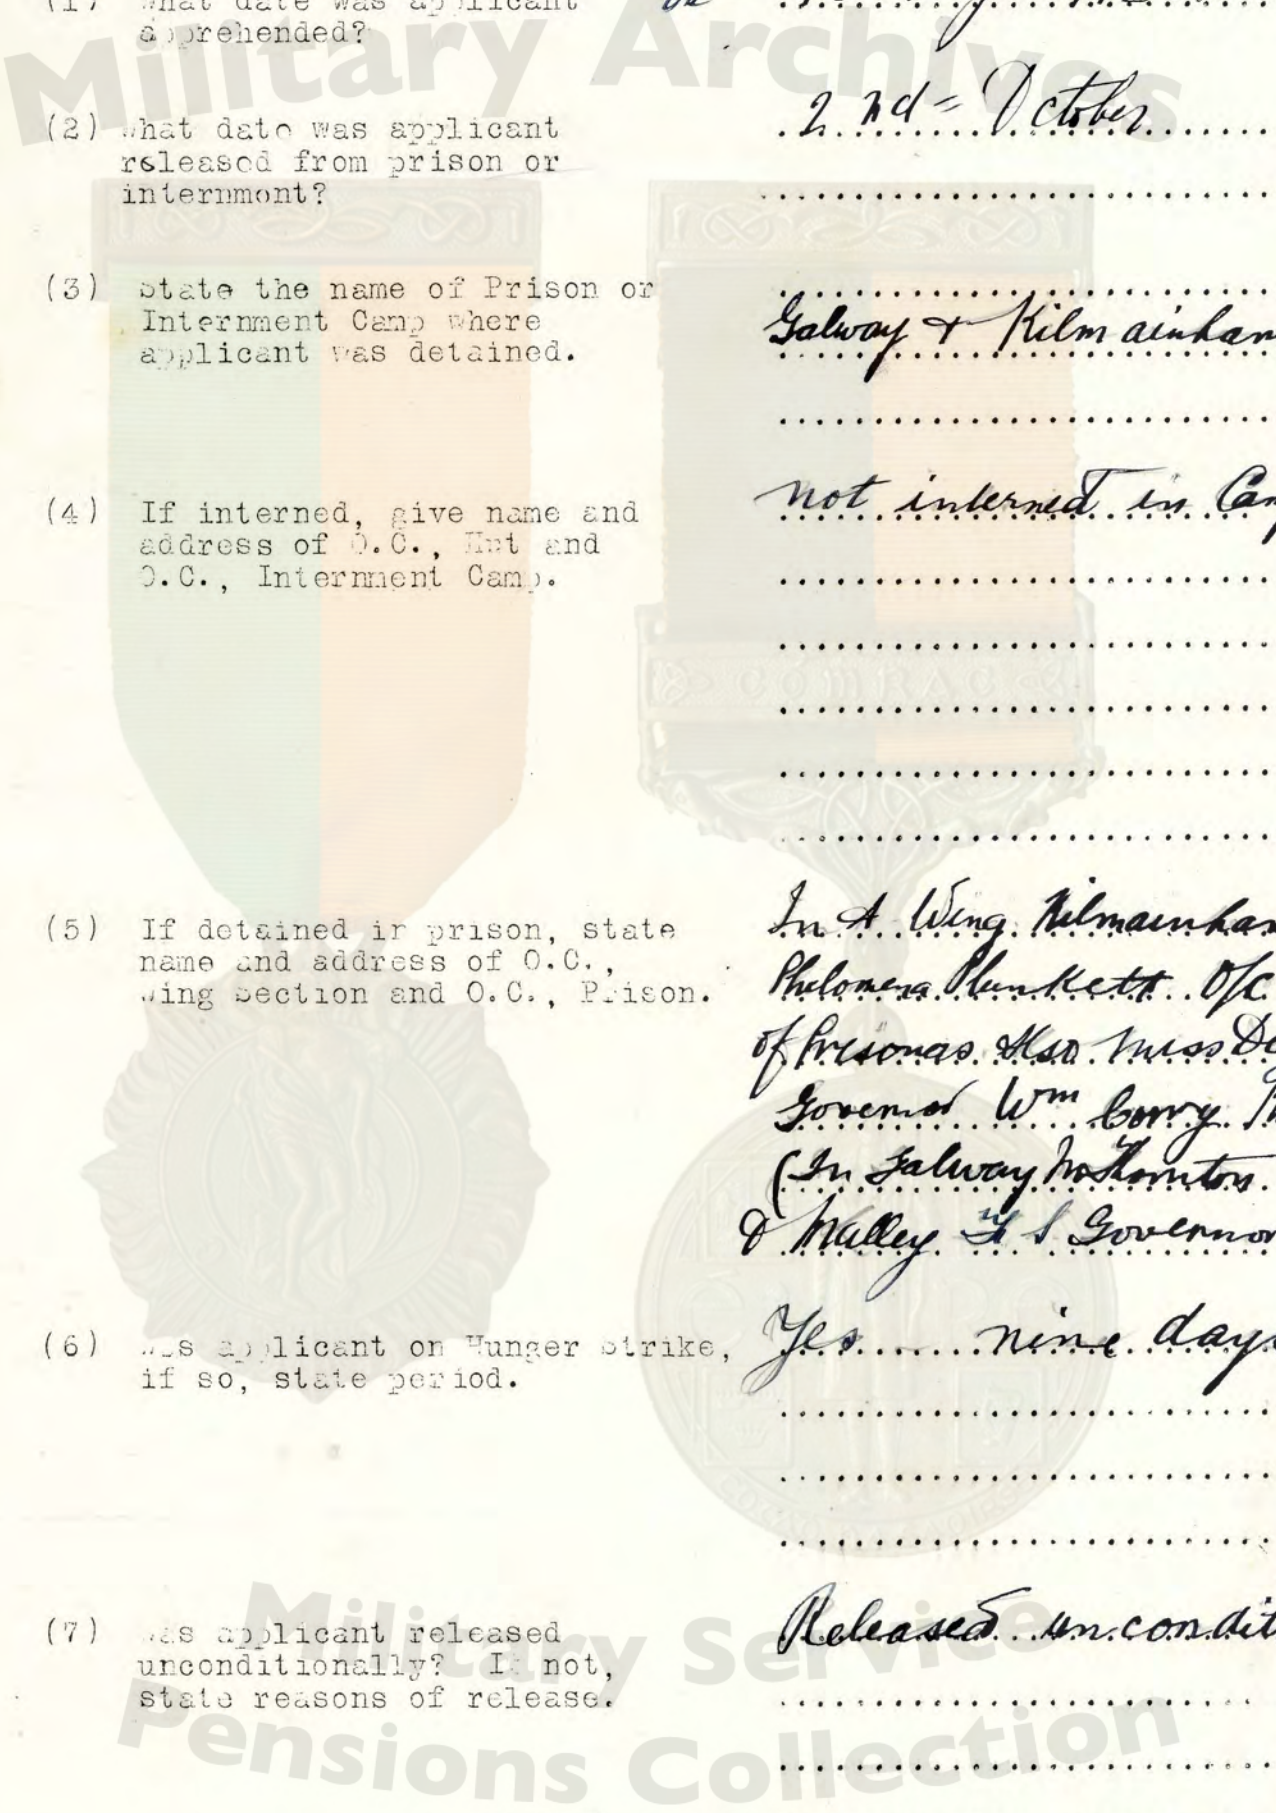 (1) What date was applicant
apprehended?
(2) What date was applicant
released from prison or
internment?
2nd = October
(3) State the name of Prison or
Internment Camp where
applicant was detained.
Galway & Kilmainham
(4) If interned, give name and
address of O.C., Hut and
O.C., Internment Camp.
not interned in
(5) If detained in prison, state
name and address of O.C.,
Wing Section and O.C., Prison.
In A Wing Kilmainham
Philomena Plunkett O/C
of Also Miss
Governor Wm Corry
(In Galway
& Malley F S Governor
(6) Was applicant on Hunger Strike,
if so, state period.
Yes nine days
(7) Was applicant released
unconditionally? If not,
state reasons of release.
Released
Military Archives
COMRAC
Military Service
Pensions Collection